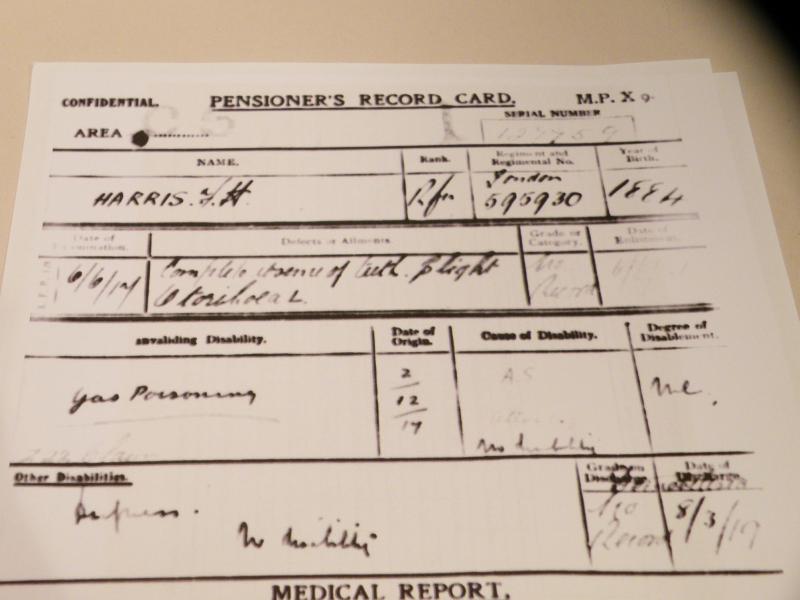 CONFIDENTIAL. PENSIONER'S RECORD CARD. M.P. X 9.
AREA SERIAL NUMBER
NAME. Rank. Regiment and Regimental No. Year of Birth.
HARRIS. F.H. Rfn London 595930 1884
Date of Examination. Defects or Ailments. Grade or Category. Date of Enlistment.
6/6/17 Complete absence of teeth. Slight No
Otorrhoea L. Record
Invaliding Disability. Date of Origin. Cause of Disability. Degree of Disablement.
Gas Poisoning 2/12/17 A.S. Nil.
No disability
Other Disabilities. Grade on Discharge. Date of Discharge.
No disability No Record 8/3/19
MEDICAL REPORT.